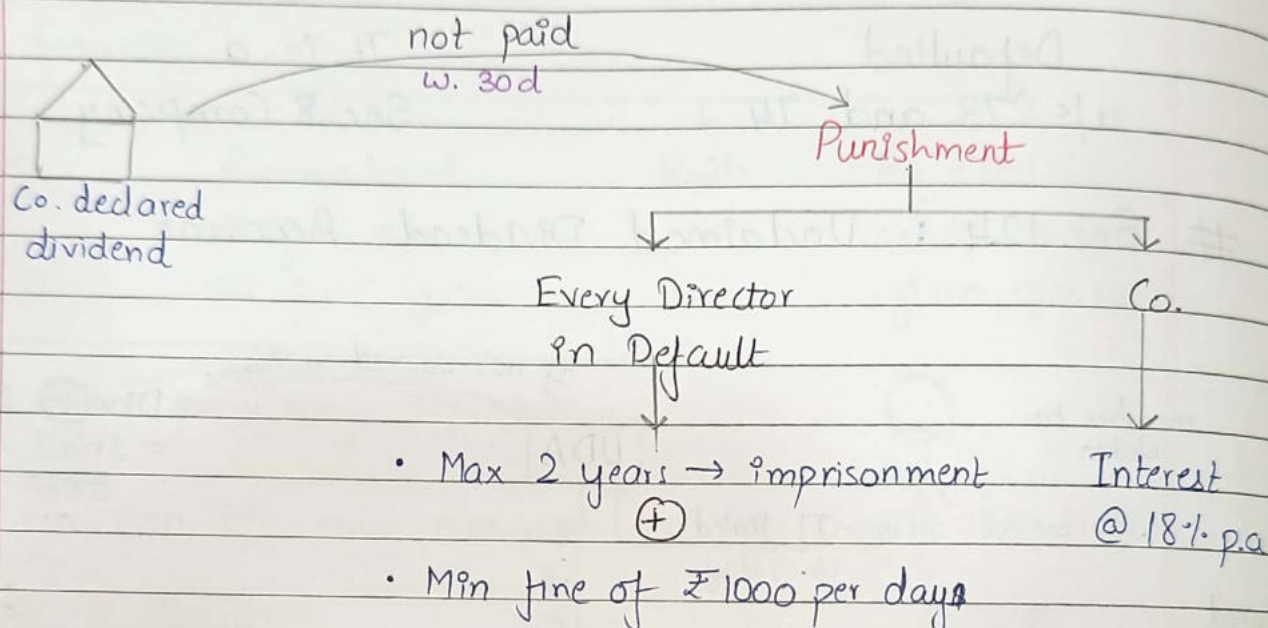 not paid
w. 30d
Punishment
Co. declared
dividend
Every Director
in Default
Co.
• Max 2 years → imprisonment
+
• Min fine of ₹1000 per day
Interest
@ 18% p.a